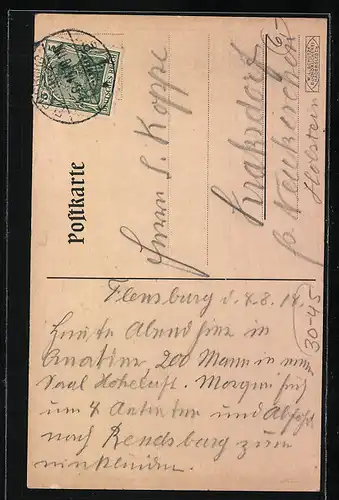 Postkarte
Herrn S. Koppe
Kraksdorf
b. Neukirchen
Holstein
Flensburg d. 4.8.14.
Heute Abend hier in
200 Mann in
Saal Hoheluft. Morgen früh
um 4 Antreten und Abfahrt
nach Rendsburg zum
einkleiden.
30-45